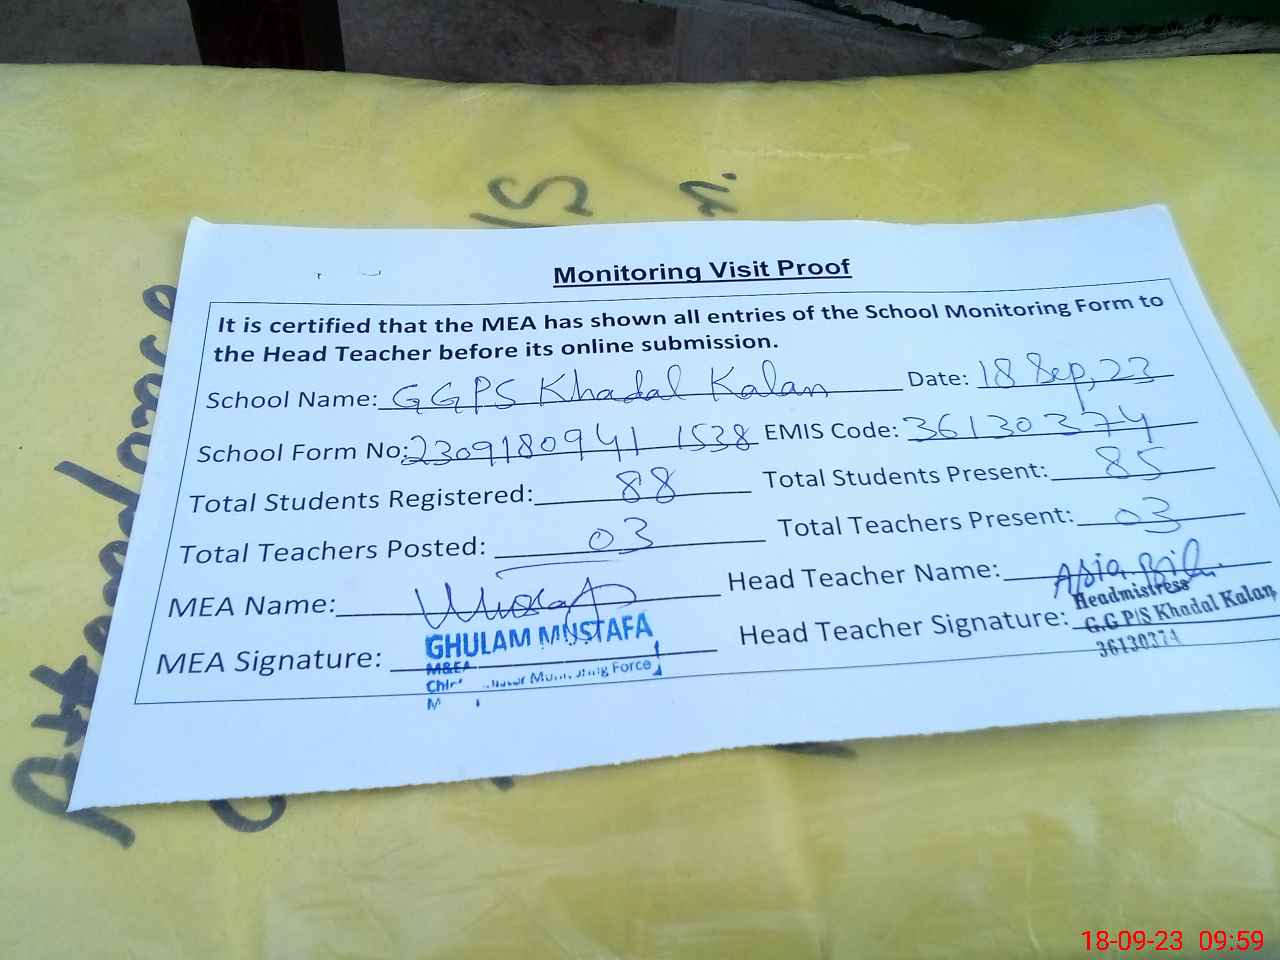 Monitoring Visit Proof
It is certified that the MEA has shown all entries of the School Monitoring Form to
the Head Teacher before its online submission.
School Name: GGPS Khadal Kalan Date: 18 Sep, 23
School Form No: 2309180941 1538 EMIS Code: 36130374
Total Students Registered: 88 Total Students Present: 85
Total Teachers Posted: 03 Total Teachers Present: 03
MEA Name: Head Teacher Name: Asia Bibi
Headmistress
GHULAM MUSTAFA
MEA Signature: Head Teacher Signature: G.G P/S Khadal Kalan
36130374
M&EA
Monitoring Force
Attendance
18-09-23 09:59